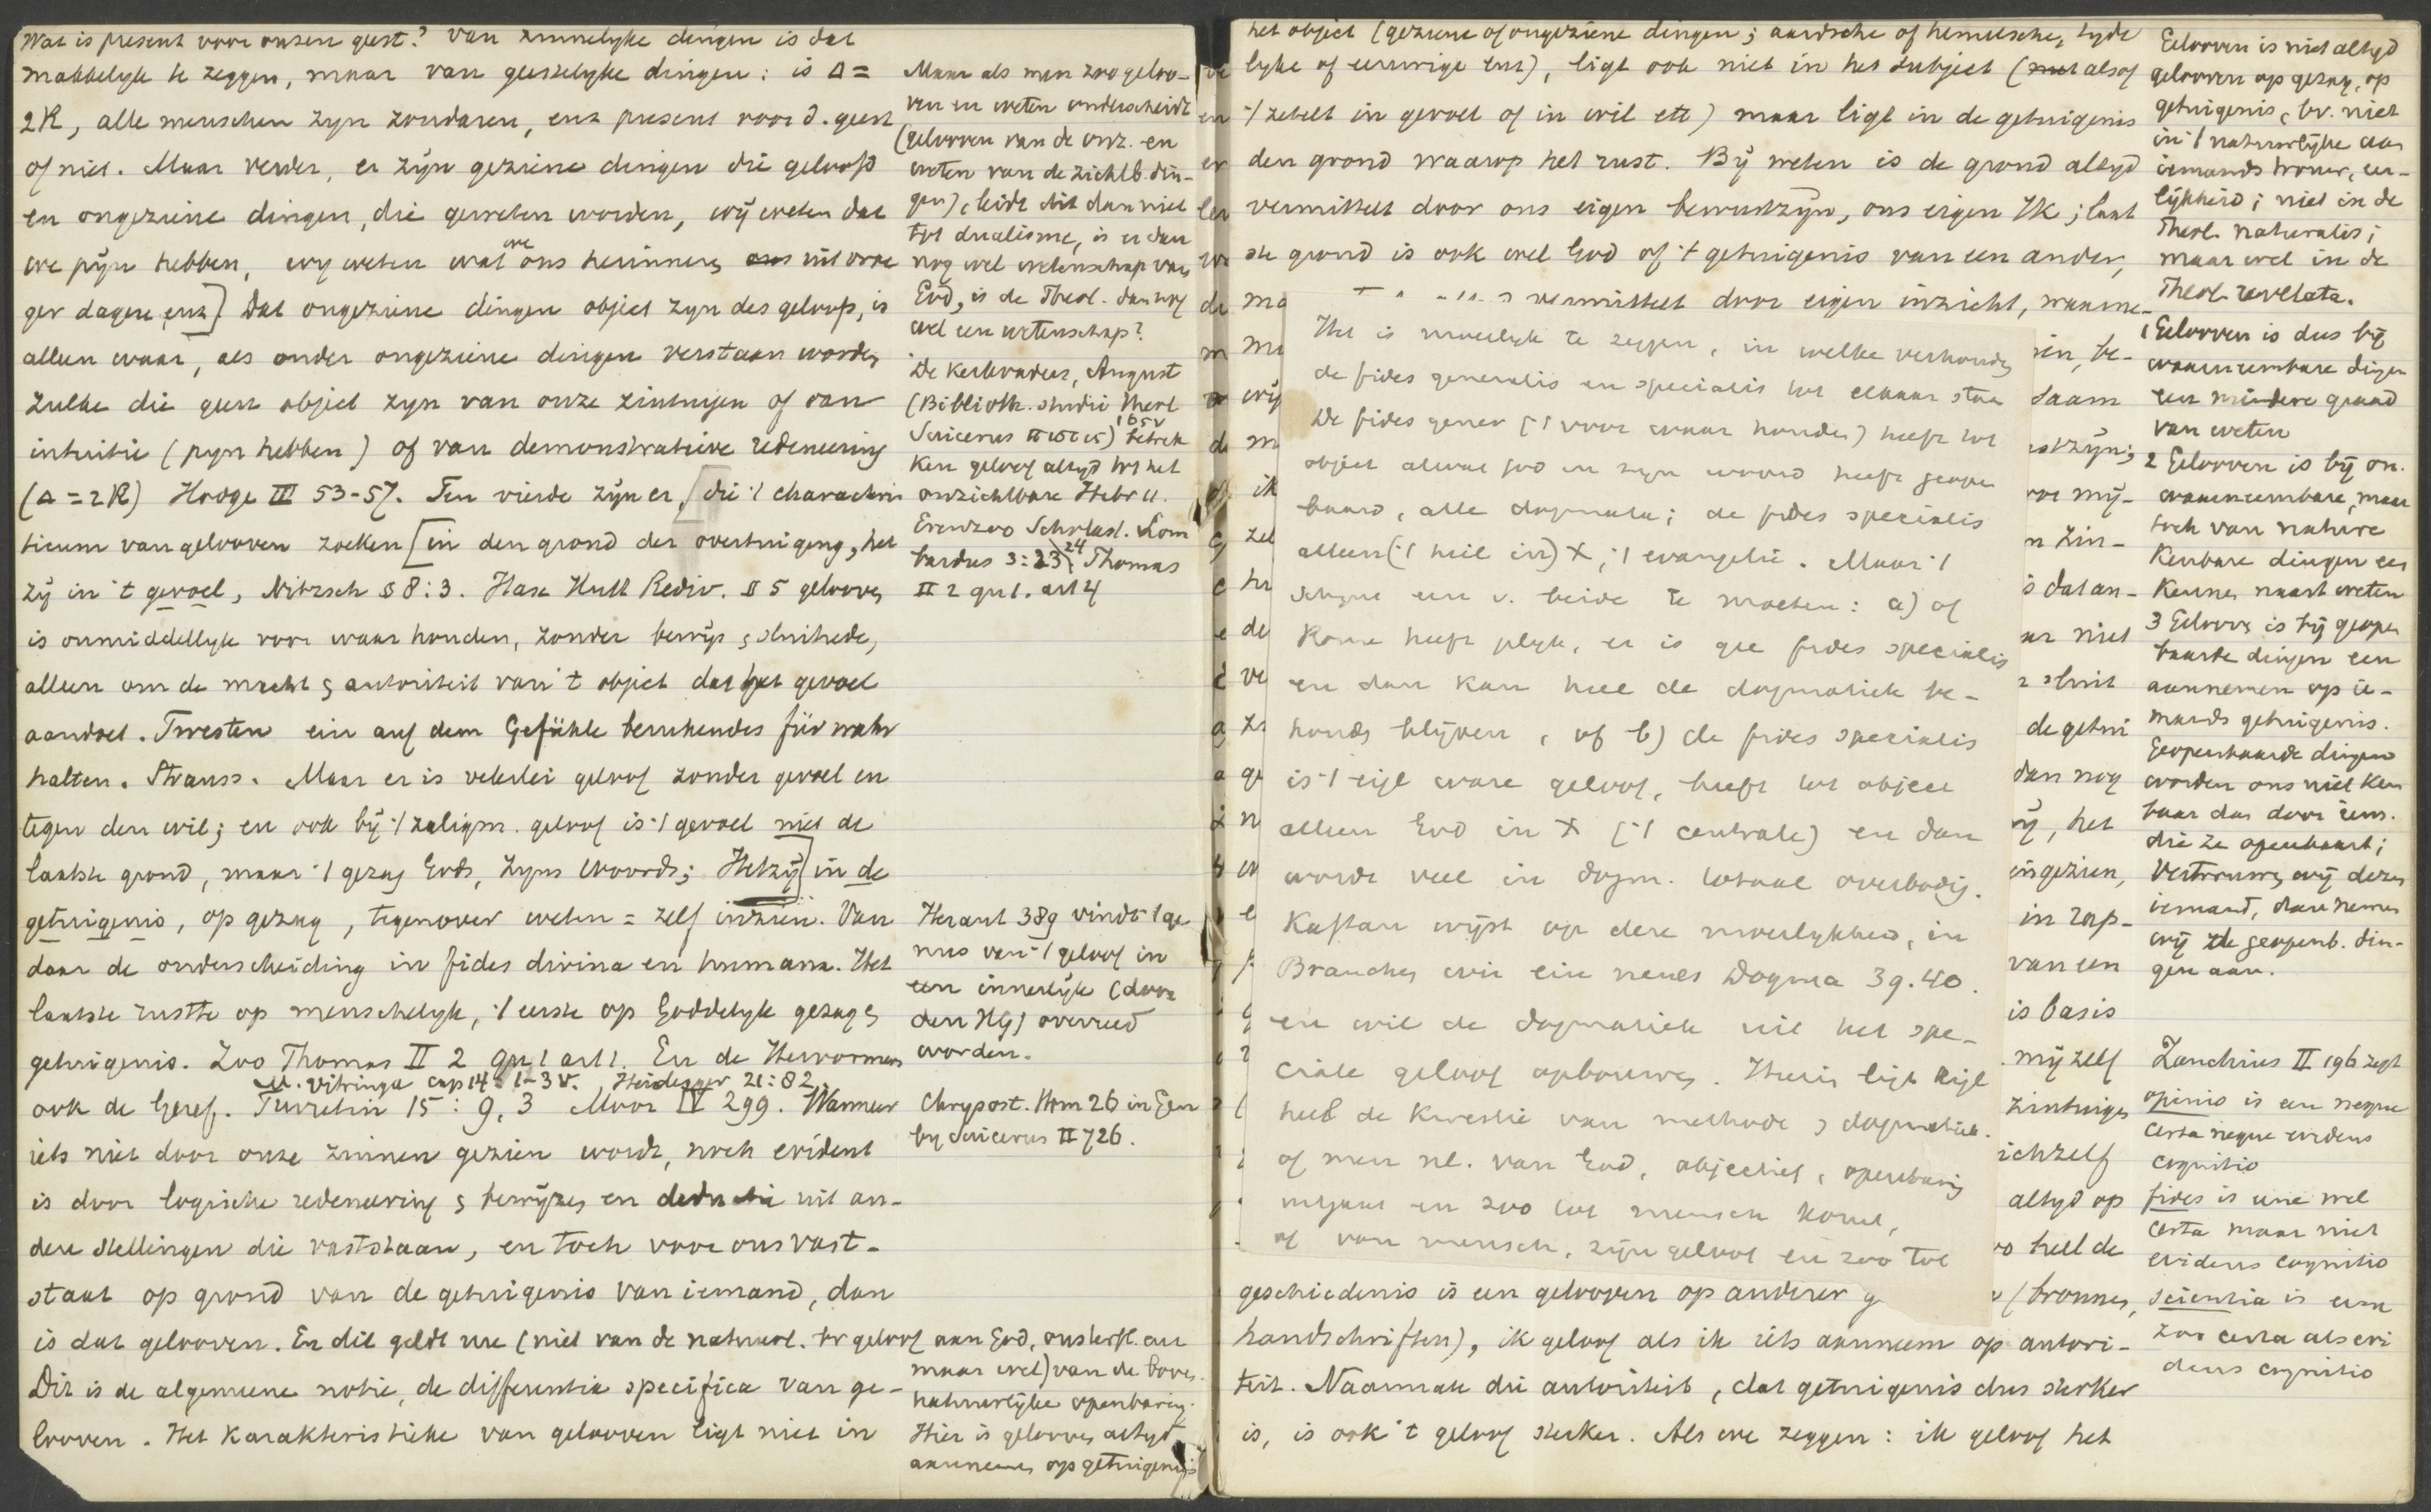 Wat is present voor onzen geest? Van zinnelyke dingen is dat
makkelyk te zeggen, maar van geestelyke dingen: is Δ =
2R, alle menschen zyn zondaren, enz present voor d. geest
of niet. Maar verder, er zyn geziene dingen die geloofd
en ongeziene dingen, die geweten worden, wy weten dat
we pyn hebben, wy weten wat we ons herinneren uit vroe
ger dagen, enz] Dat ongeziene dingen object zyn des geloofs, is
alleen waar, als onder ongeziene dingen verstaan worden
zulke die geen object zyn van onze zintuigen of van
intuitie (pyn hebben) of van demonstratieve redeneering
(Δ = 2R) Hodge III 53-57. Ten vierde zyn er, [die 't characteris
ticum van gelooven zoeken [in den grond der overtuiging, het
zy in 't gevoel, Nitzsch § 8:3. Hase Hutt Rediv. § 5 gelooven
is onmiddellyk voor waar houden, zonder bewys,
alleen om de macht & autoriteit van 't object dat het gevoel
aandoet. Twesten ein auf dem Gefühle beruhendes für wahr
halten. Strauss. Maar er is velerlei geloof zonder gevoel en
tegen den wil; en ook by 't zaligm. geloof is 't gevoel niet de
laatste grond, maar 't gezag Gods, Zyns Woords; Hetzy] in de
getuigenis, op gezag, tegenover weten = zelf inzien. Van
daar de onderscheiding in fides divina en humana. Het
laatste rustte op menschelyk, 't eerste op Goddelyk gezag &
getuigenis. Zoo Thomas II 2 qu 1 art 1. En de Hervormers
M. Vitringa cap 14: 1-3 v. Heidegger 21:82.
ook de Geref. Turretin 15: 9, 3 Moor IV 299. Wanneer
iets niet door onze zinnen gezien wordt, noch evident
is door logische redeneering & bewyzen en deductie uit an-
dere stellingen die vaststaan, en toch voor ons vast-
staat op grond van de getuigenis van iemand, dan
is dat gelooven. En dit geldt nu (niet van de natuurl. br geloof aan God, onsterfl. en
Dit is de algemeene notie, de differentia specifica van ge-
looven. Het karakteristieke van gelooven ligt niet in
Maar als men zoo geloo-
ven en weten onderscheidt
(gelooven van de onz. en
weten van de zichtb. din-
gen), leidt dit dan niet
tot dualisme, is er dan
nog wel wetenschap van
God, is de Theol. dan nog
wel een wetenschap?
De Kerkvaders, August
(Biblioth. studii theol
165 v
Suicerus) betrek
ken geloof altyd tot het
onzichtbare Hebr 11.
Evenzoo Scholast. Lom
bardus 3:23, 24 Thomas
II 2 qu 1. art 4
Heraut 389 vindt 't ge
nus van 't geloof in
een innerlyk (door
den HG) overreed
worden.
Chrysost. Hom 26 in Gen
by Suicerus II 726.
maar wel) van de boven
natuurlyke openbaring.
Hier is gelooven altyd
aannemen op getuigenis
het object (geziene of ongeziene dingen; aardsche of hemelsche, tyde
lyke of eeuwige enz), ligt ook niet in het subject (alsof
't zetelt in gevoel of in wil etc) maar ligt in de getuigenis
den grond waarop het rust. By weten is de grond altyd
vermittelt door ons eigen bewustzyn, ons eigen IK; laat
ste grond is ook wel God of 't getuigenis van een ander,
vermittelt door eigen inzicht, waarne-
Het is moeilyk te zeggen, in welke verhouding
de fides generalis en specialis tot elkaar staan
De fides gener ('t voor waar houden) heeft tot
object alwat God in zyn woord heeft geopen
baard, alle dogmata; de fides specialis
alleen ('t heil in) X, 't evangelie. Maar 't
schynt een v. beide te moeten: a) of
Rome heeft gelyk, er is gee fides specialis
en dan kan heel de dogmatiek be-
houden blyven, of b) de fides specialis
is 't eigl ware geloof, heeft tot object
alleen God in X ('t centrale) en dan
wordt veel in dogm. totaal overbodig.
Kaftan wyst op deze moeilykheid, in
Brauchen wir ein neues Dogma 39.40.
en wil de dogmatiek uit het spe-
ciale geloof opbouwen. Hierin ligt eigl
heel de kwestie van methode dogmatiek.
of men nl. van God, objectief, openbaring
uitgaat en zoo tot mensch komt,
of van mensch, zyn geloof en zoo tot
geschiedenis is een gelooven op anderer g
(bronnen,
handschriften), ik geloof als ik iets aanneem op autori-
teit. Naarmate die autoriteit, dat getuigenis dus sterker
is, is ook 't geloof sterker. Als we zeggen: ik geloof het
Gelooven is niet altyd
gelooven op gezag, op
getuigenis, bv. niet
in 't natuurlyke aan
iemands trouw, eer-
lykheid; niet in de
Theol. naturalis;
maar wel in de
Theol. revelata.
1 Gelooven is dus by
waarneembare dingen
een mindere graad
van weten
2 Gelooven is by on-
waarneembare, maar
toch van nature
kenbare dingen een
kennen naast weten
3 Gelooven is by geopen
baarde dingen een
aannemen op ie-
mands getuigenis.
Geopenbaarde dingen
worden ons niet ken
baar dan door iem.
die ze openbaart;
vertrouwen wy dezen
iemand, dan nemen
wy de geopenb. din-
gen aan.
Zanchius II 196 zegt
opinio is een neque
certa neque evidens
cognitio
fides is eene wel
certa maar niet
evidens cognitio
scientia is eene
zoo certa als evi
dens cognitio